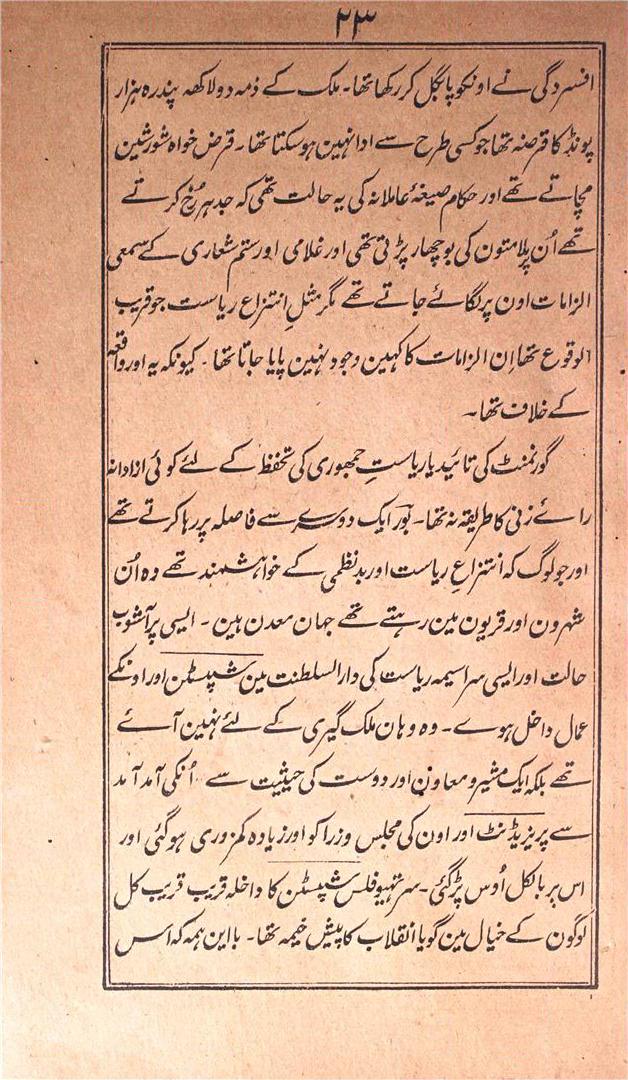 ۲۳
افسردگی نے اونکو پابگل کر رکھا تھا۔ ملک کے ذمہ دو لاکھہ پندرہ ہزار
پونڈ کا قرضہ تھا جو کسی طرح سے ادا نہین ہو سکتا تھا۔ قرض خواہ شورشین
مچاتے تھے اور حکام صیغۂ عاملانہ کی یہ حالت تھی کہ جدہر رُخ کرتے
تھے اُن پر ملامتون کی بوچھار پڑتی تھی اور غلامی اور ستم شعاری کے سمعی
الزامات اون پر لگائے جاتے تھے مگر مثلِ انتزاع ریاست جو قریب
الوقوع تھا اِن الزامات کا کہین وجود نہین پایا جاتا تھا۔ کیونکہ یہ اور واقعہ
کے خلاف تھا۔
گورنمنٹ کی تائید یا ریاستِ جمہوری کی تحفظ کے لئے کوئی ازادانہ
رائے زنی کا طریقہ نہ تھا۔ بُوَر ایک دوسرے سے فاصلہ پر رہا کرتے تھے
اور جو لوگ کہ انتزاعِ ریاست اور بدنظمی کے خواہشمند تھے وہ اُن
شہرون اور قریون مین رہتے تھے جہان معدن ہین۔ ایسی پر آشوب
حالت اور ایسی سراسیمہ ریاست کی دار السلطنت مین شپسٹن اور اونکے
عمال داخل ہوے۔ وہ وہان ملک گیری کے لئے نہین آئے
تھے بلکہ ایک مشیر و معاون اور دوست کی حیثیت سے۔ اُنکی آمد آمد
سے پریزیڈنٹ اور اون کی مجلس وزرا کو اور زیادہ کمزوری ہو گئی اور
اس پر بالکل اُوس پڑ گئی۔ سر تہیوفلس شپسٹن کا داخلہ قریب قریب کل
لوگون کے خیال مین گویا انقلاب کا پیش خیمہ تھا۔ با این ہمہ کہ اس